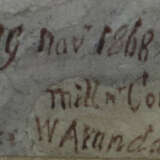 19 nov 1868
mill n Co
W Arand